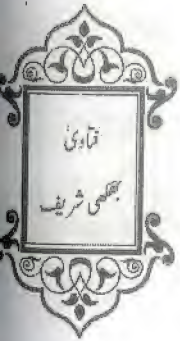 فتاویٰ
بھکھی شریف